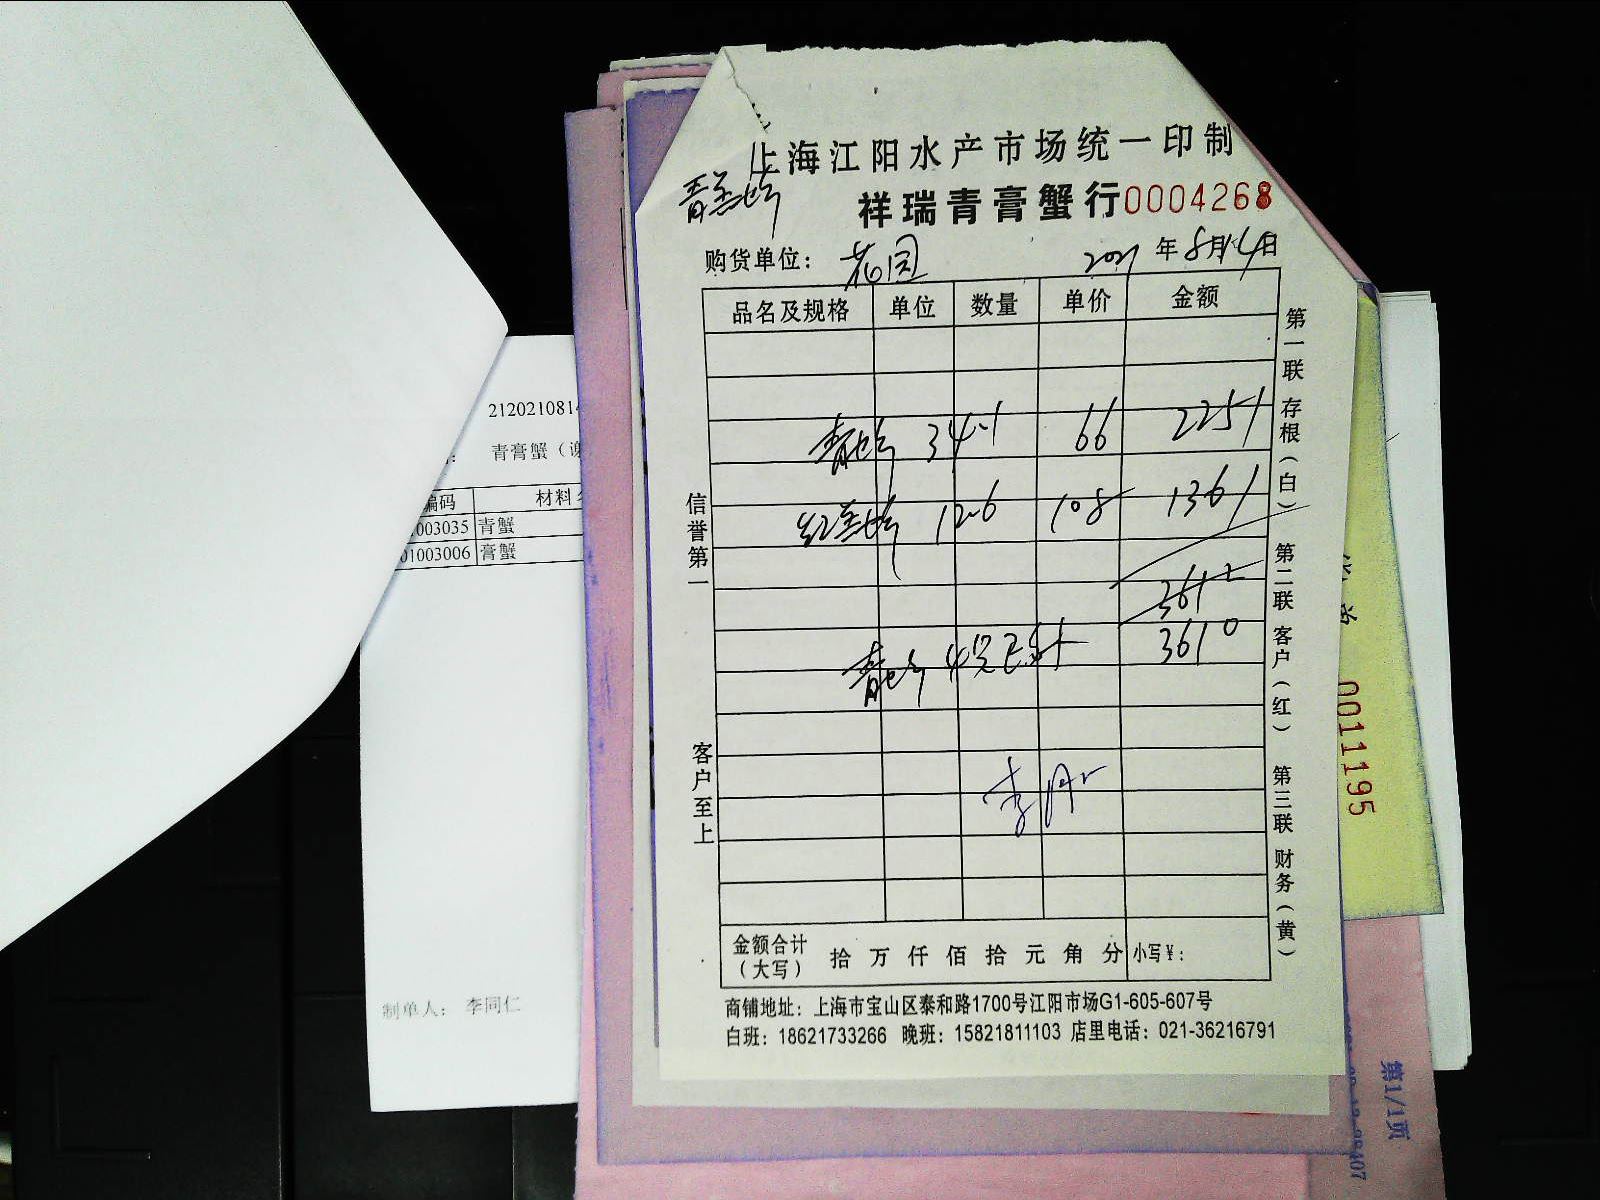 上海江阳水产市场统一印制
青羔蟹
祥瑞青膏蟹行0004268
购货单位： 花园 2021年8月14日
品名及规格 单位 数量 单价 金额
青蟹 34.1 66 2251
红羔蟹 12.6 108 1361
3612
3610
青蟹 4只已死
信誉第一
客户至上
第一联 存根（白） 第二联 客户（红） 第三联 财务（黄）
金额合计（大写） 拾 万 仟 佰 拾 元 角 分 小写¥：
商铺地址：上海市宝山区泰和路1700号江阳市场G1-605-607号
白班：18621733266 晚班：15821811103 店里电话：021-36216791
2120210814
青膏蟹（谢
编码 材料
003035 青蟹
01003006 膏蟹
制单人： 李同仁
0011195
第1/1页